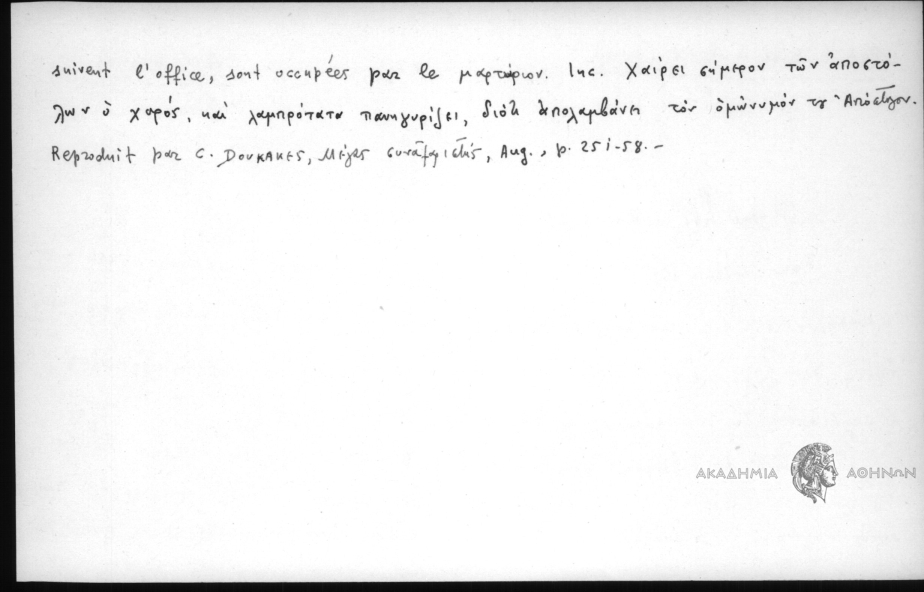 suivent l'office, sont occupées par le μαρτύριον. Inc. Χαίρει σήμερον τῶν ἀποστό-
λων ὁ χορός, καὶ λαμπρότατα πανηγυρίζει, διότι ἀπολαμβάνει τὸν ὁμώνυμόν του Ἀπόστολον.
Reproduit par C. DOUKAKES, Μέγας συναξαριστής, Aug., p. 251-58. –
ΑΚΑΔΗΜΙΑ ΑΘΗΝΩΝ